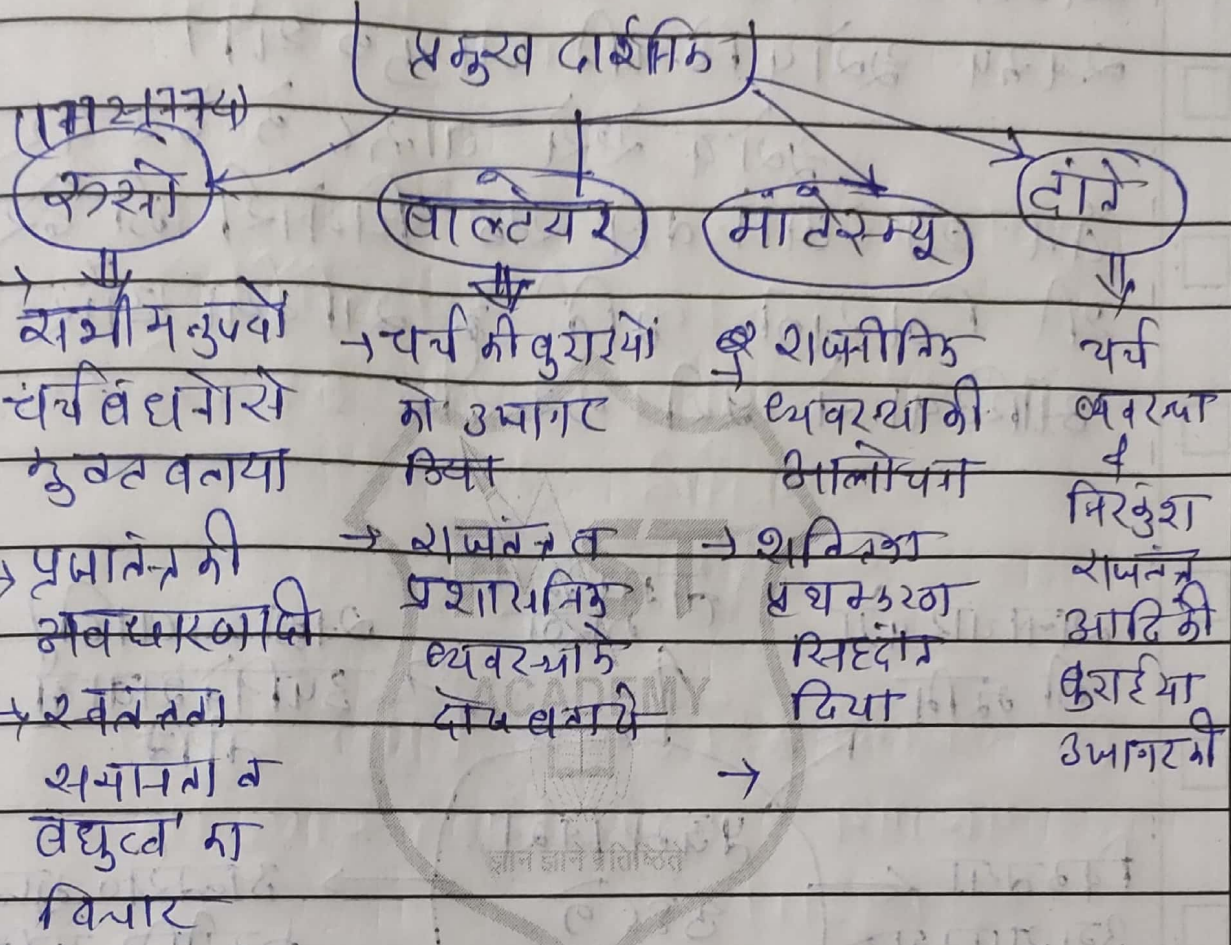 प्रमुख दार्शनिक
(1712-1774)
रूसो
सभी मनुष्यो
चर्च बंधनो से
मुक्त बताया
→ प्रजातंत्र की
अवधारणा दी
→ स्वतंत्रता
समानता व
बंधुत्व का
विचार
वाल्टेयर
→ चर्च की बुराईयों
को उजागर
किया
→ राजतंत्र व
प्रशासनिक
व्यवस्था के
दोष बताये
मांटेस्क्यू
→ राजनीतिक
व्यवस्था की
आलोचना
→ शक्ति का
प्रथक्करण
सिद्दांत
दिया
→
दांते
चर्च
व्यवस्था
व
निरकुंश
राजतंत्र
आदि की
बुराईया
उजागर की
ACADEMY